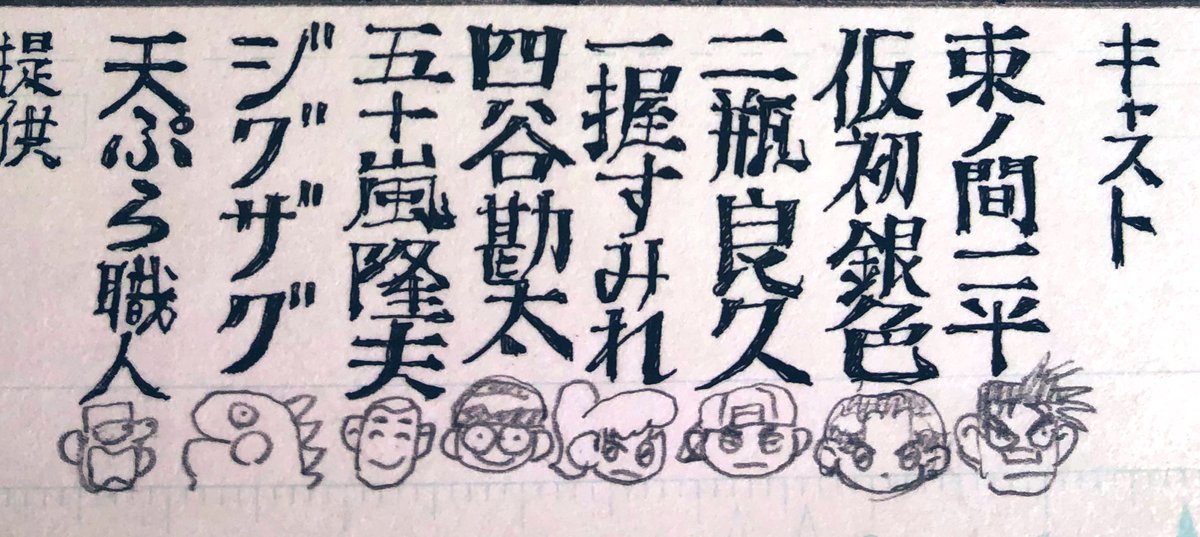 キャスト
東ノ間二平
仮初銀色
二瓶良久
一握すみれ
四谷勘太
五十嵐隆夫
ジグザグ
天ぷら職人
提供